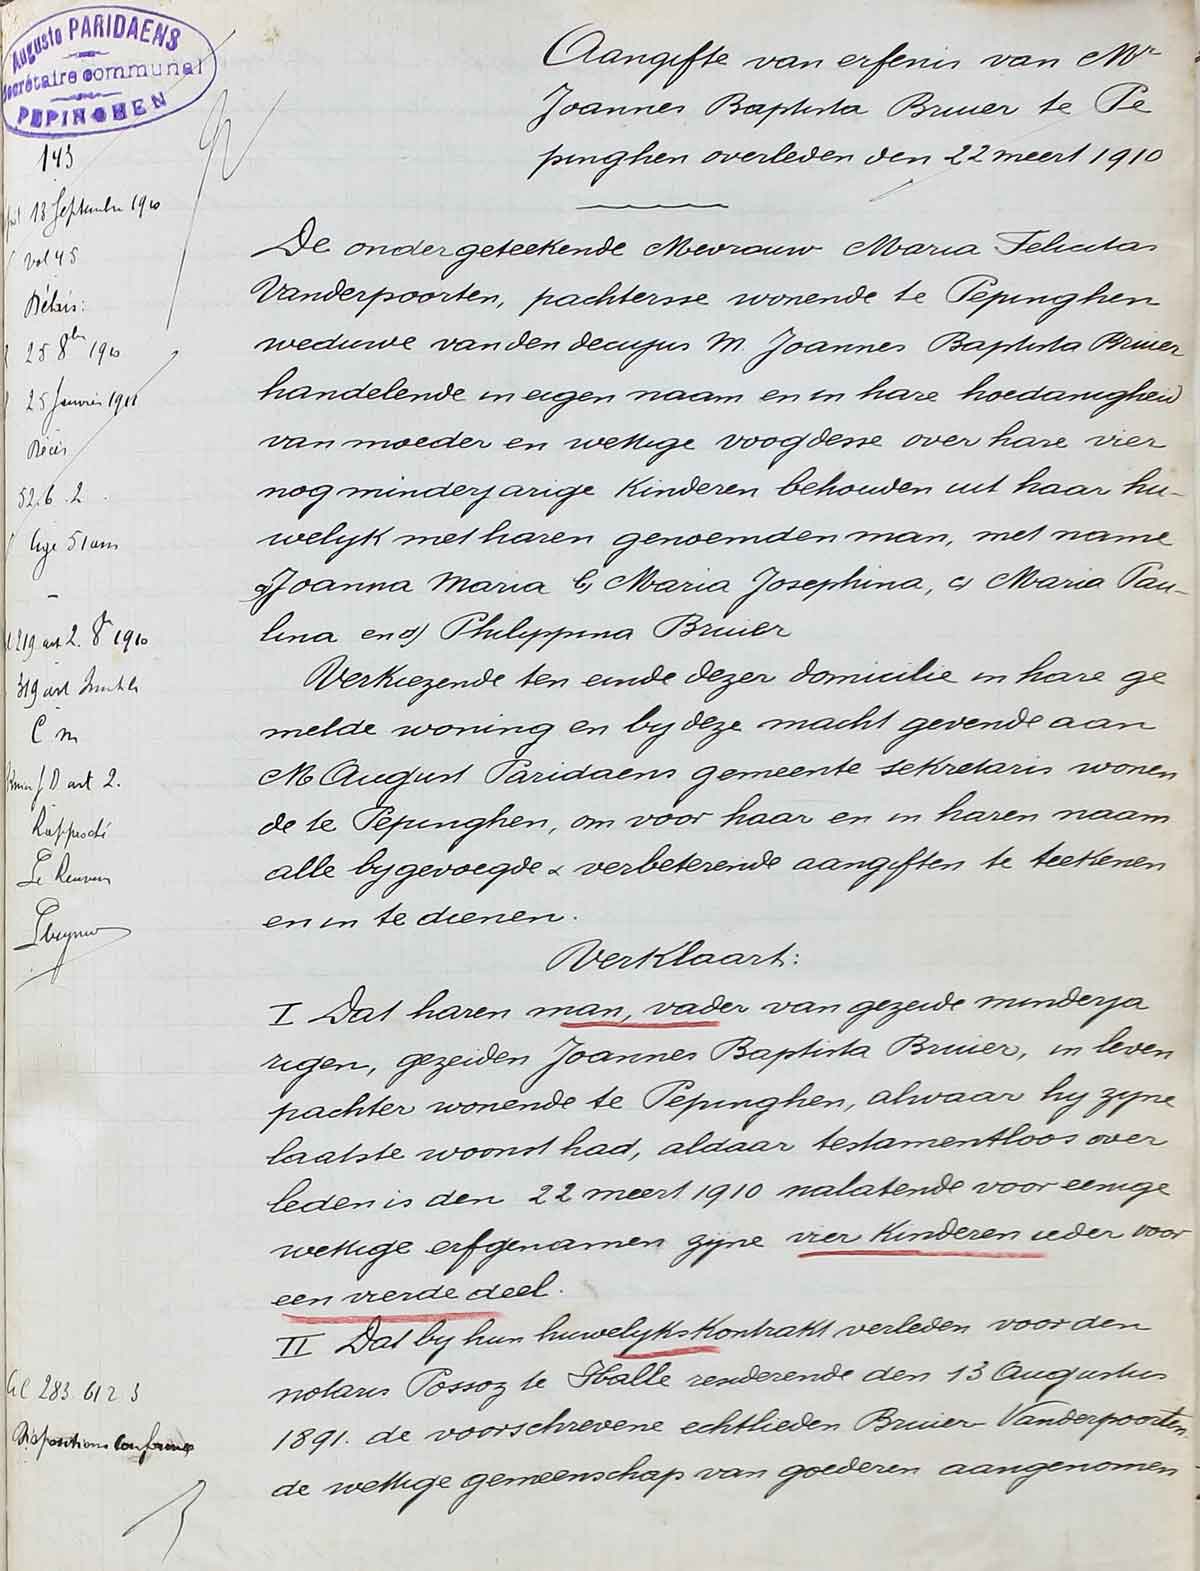 Auguste PARIDAENS
Secrétaire communal
PEPINGHEN
143
18 Septembre 1910
vol 45
Délais:
25 8bre 1910
25 Janvier 1911
Décès
52.6.2
âgé 51 ans
219 art 2. 8bre 1910
319 art
C m
art 2.
Le Receveur
283 612 3
Dispositions
Aangifte van erfenis van Mr
Joannes Baptista Bruier te Pe
pinghen overleden den 22 meert 1910
De ondergeteekende Mevrouw Maria Felicitas
Vanderpoorten, pachtersse wonende te Pepinghen
weduwe van den decujus M. Joannes Baptista Bruier
handelende in eigen naam en in hare hoedanigheid
van moeder en wettige voogdesse over hare vier
nog minderjarige Kinderen behouden uit haar hu-
welijk met haren genoemden man, met name
a) Joanna Maria b) Maria Josephina, c) Maria Pau-
lina en d) Philippina Bruier
Verkiezende ten einde dezer domicilie in hare ge
melde woning en by deze macht gevende aan
M August Paridaens gemeente sekretaris wonen
de te Pepinghen, om voor haar en in haren naam
alle bygevoegde & verbeterende aangiften te teekenen
en in te dienen.
Verklaart:
I Dat haren man, vader van gezeide minderja
rigen, gezeiden Joannes Baptista Bruier, in leven
pachter wonende te Pepinghen, alwaar hy zyne
laatste woonst had, aldaar testamentloos over
leden is den 22 meert 1910 nalatende voor eenige
wettige erfgenamen zyne vier Kinderen ieder voor
een vierde deel.
II Dat by hun huwelykskontrakt verleden voor den
notaris Possoz te Halle resideerende den 13 Augustus
1891. de voorschrevene echtlieden Bruier-Vanderpoorten
de wettige gemeenschap van goederen aangenomen